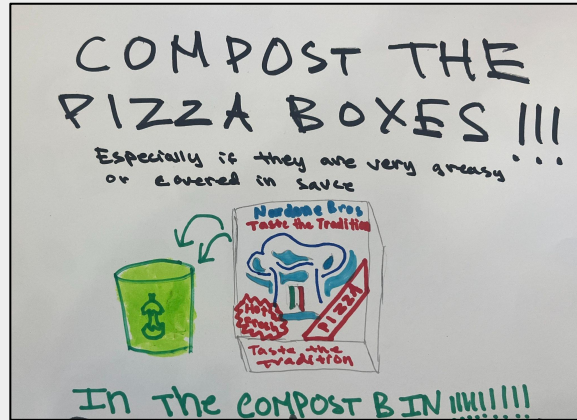 COMPOST THE
PIZZA BOXES !!!
Especially if they are very greasy
or covered in sauce
Nardone Bros
Taste the Tradition
Hot!
Fresh
PIZZA
Taste the
Tradition
In The COMPOST BIN !!!!!!!!!!